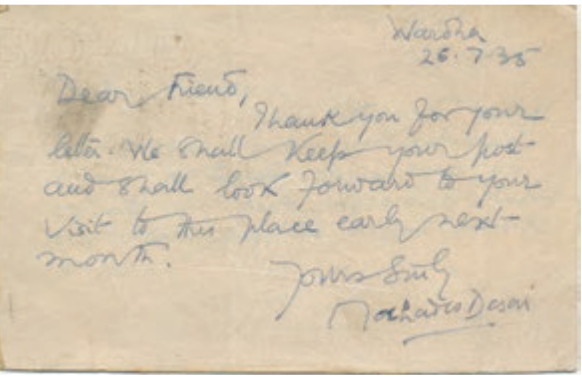 Wardha
26.7.35
Dear Friend,
Thank you for your
letter. We shall keep your post
and shall look forward to your
visit to this place early next
month.
Yours Sincly
Mahadev Desai